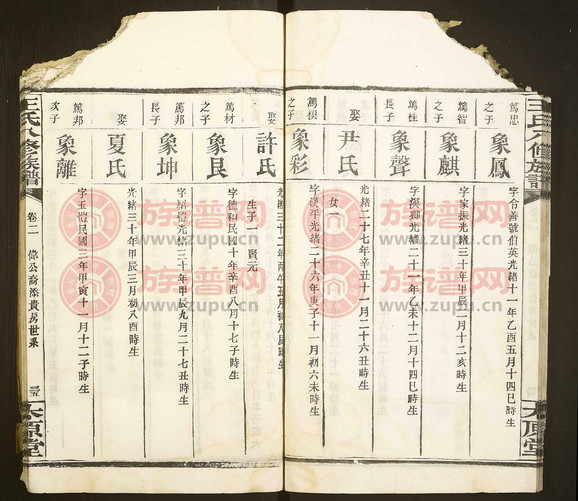 王氏八修族譜
太原堂
篤忠
之子
象鳳
字合善號伯英光緒十一年乙酉五月十四巳時生
篤智
之子
象麒
字家振光緒三十年甲辰二月十二亥時生
篤桂
長子
象聲
字漢鄉光緒二十一年乙未十二月十四巳時生
娶
尹氏
光緒二十七年辛丑十一月二十六丑時生
女一
篤根
之子
象彩
字漢平光緒二十六年庚子十一月初六未時生
娶
許氏
光緒三十二年丙午五月初八辰時生
生子一 賢元
篤材
之子
象艮
字德和民國十年辛酉八月十七子時生
篤邦
長子
象坤
字紹愷光緒三十年甲辰九月二十七丑時生
娶
夏氏
光緒三十年甲辰三月初八酉時生
篤邦
次子
象離
字玉愷民國三年甲寅十一月十二子時生
王氏八修族譜
卷二
偉公裔添貴房世系
太原堂
族譜网
www.zupu.cn